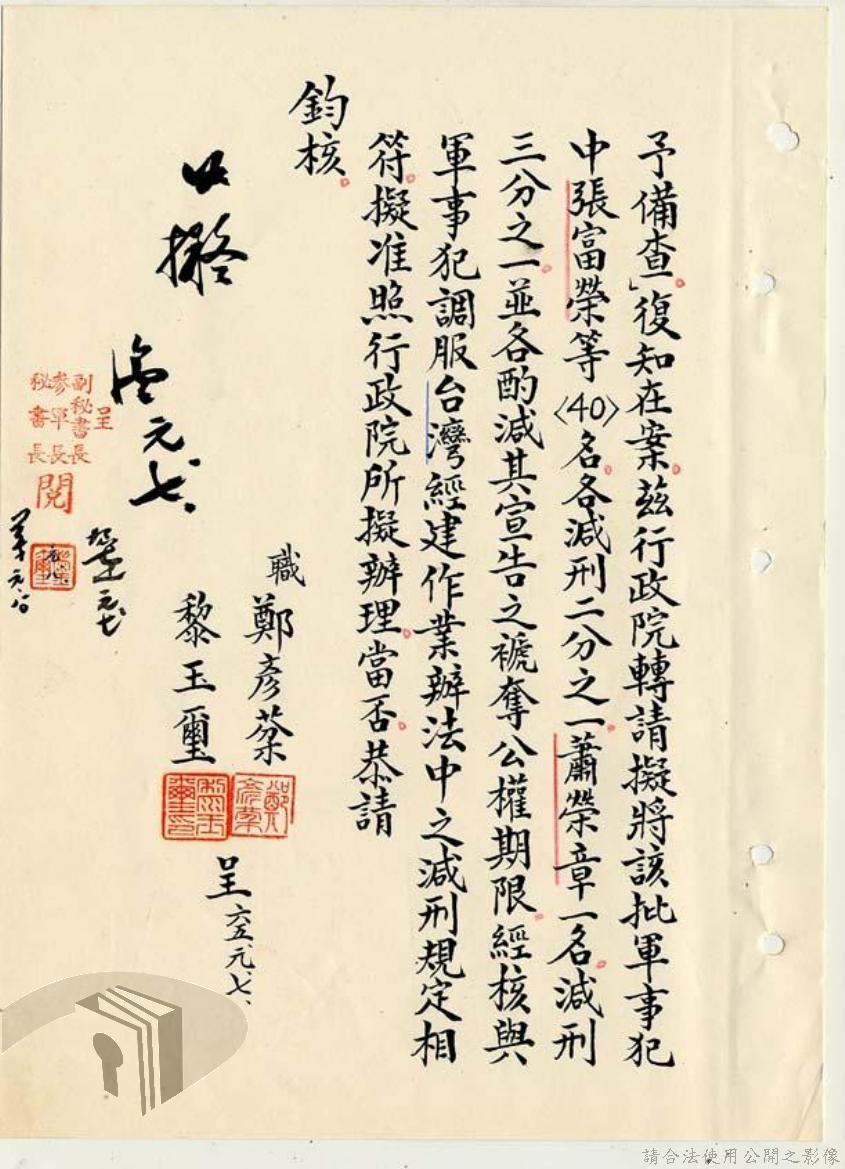 予備查」復知在案。茲行政院轉請擬將該批軍事犯
中張富榮等〈40〉名。各減刑二分之一蕭榮章一名。減刑
三分之一。並各酌減其宣告之褫奪公權期限。經核與
軍事犯調服台灣經建作業辦法中之減刑規定相
符。擬准照行政院所擬辦理。當否。恭請
鈞核。
職 鄭彥棻
黎玉璽
呈 六五元、七、
擬
元、七、
呈
副秘書長
參軍長
秘書長
閱
請合法使用公開之影像